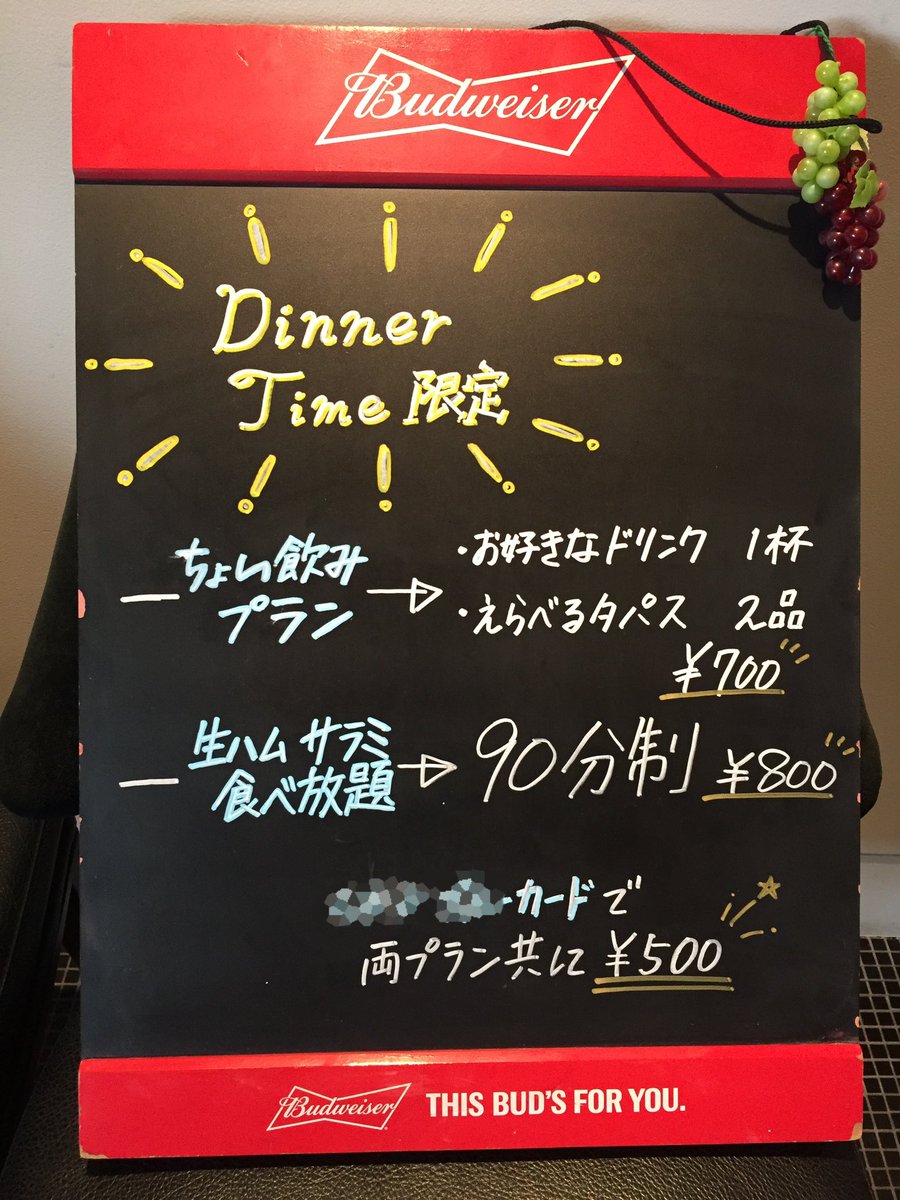 Budweiser
Dinner
Time 限定
ちょい飲み
プラン
・お好きなドリンク 1杯
・えらべるタパス 2品
¥700
生ハム サラミ
食べ放題
90分制 ¥800
カードで
両プラン共に ¥500
Budweiser THIS BUD'S FOR YOU.